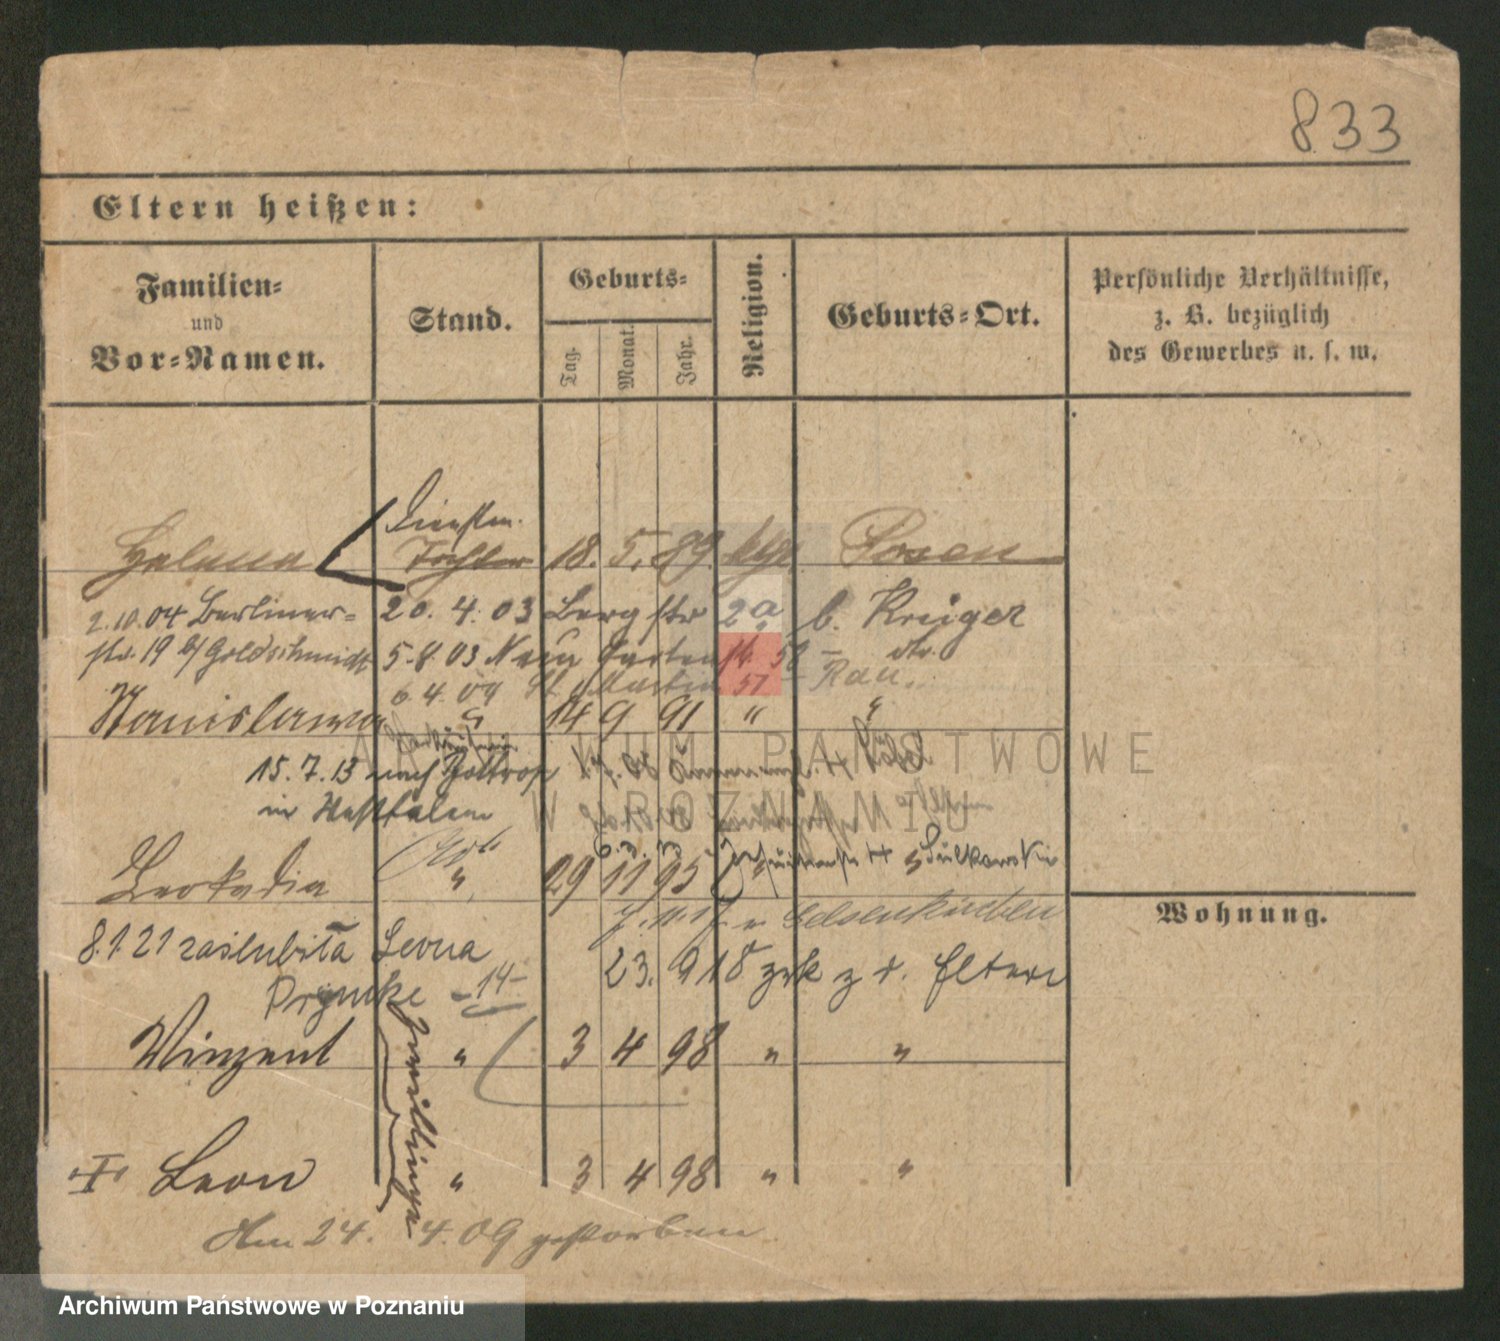 833
Eltern heißen:
Familien-
und
Vor-Namen.
Stand.
Geburts-
Tag.
Monat.
Jahr.
Religion.
Geburts-Ort.
Persönliche Verhältnisse,
z. B. bezüglich
des Gewerbes u. s. w.
Dienstm.
Helena Tochter 18. 5. 89. kth. Posen
2.10.04 Berliner- 20. 4. 03 Berg str 2a b. Krüger
str. 19 b/ Goldschmidt 5.8.03 Neue Gartenstr. 58 -
6 4. 09 St. Martin 57 - Rau.
Stanislawa " 14 9 91 " "
15. 7. 13 nach Bottrop
in Westfalen
6.3.
Leokadia " 29 11 95 " " Sulkowski
Gelsenkirchen
8.1 21 zaślubiła Leona
23. 9 18 zrk z d. Eltern
Prymke - 14 -
Winzent " 3 4 98 " "
Zwillinge
Leon " 3 4 98 " "
Am 24. 4. 09 gestorben
Wohnung.
ARCHIWUM PAŃSTWOWE
W POZNANIU
Archiwum Państwowe w Poznaniu